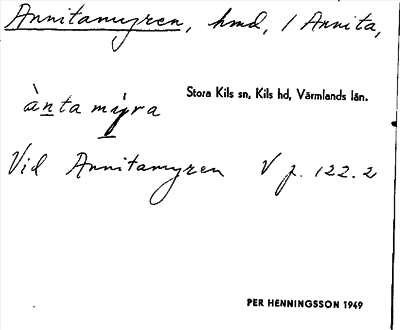 Annitamyren, hmd, / Annita,
Stora Kils sn, Kils hd, Värmlands län.
ànta mýra
Vid Annitamyren V p. 122.2
PER HENNINGSSON 1949